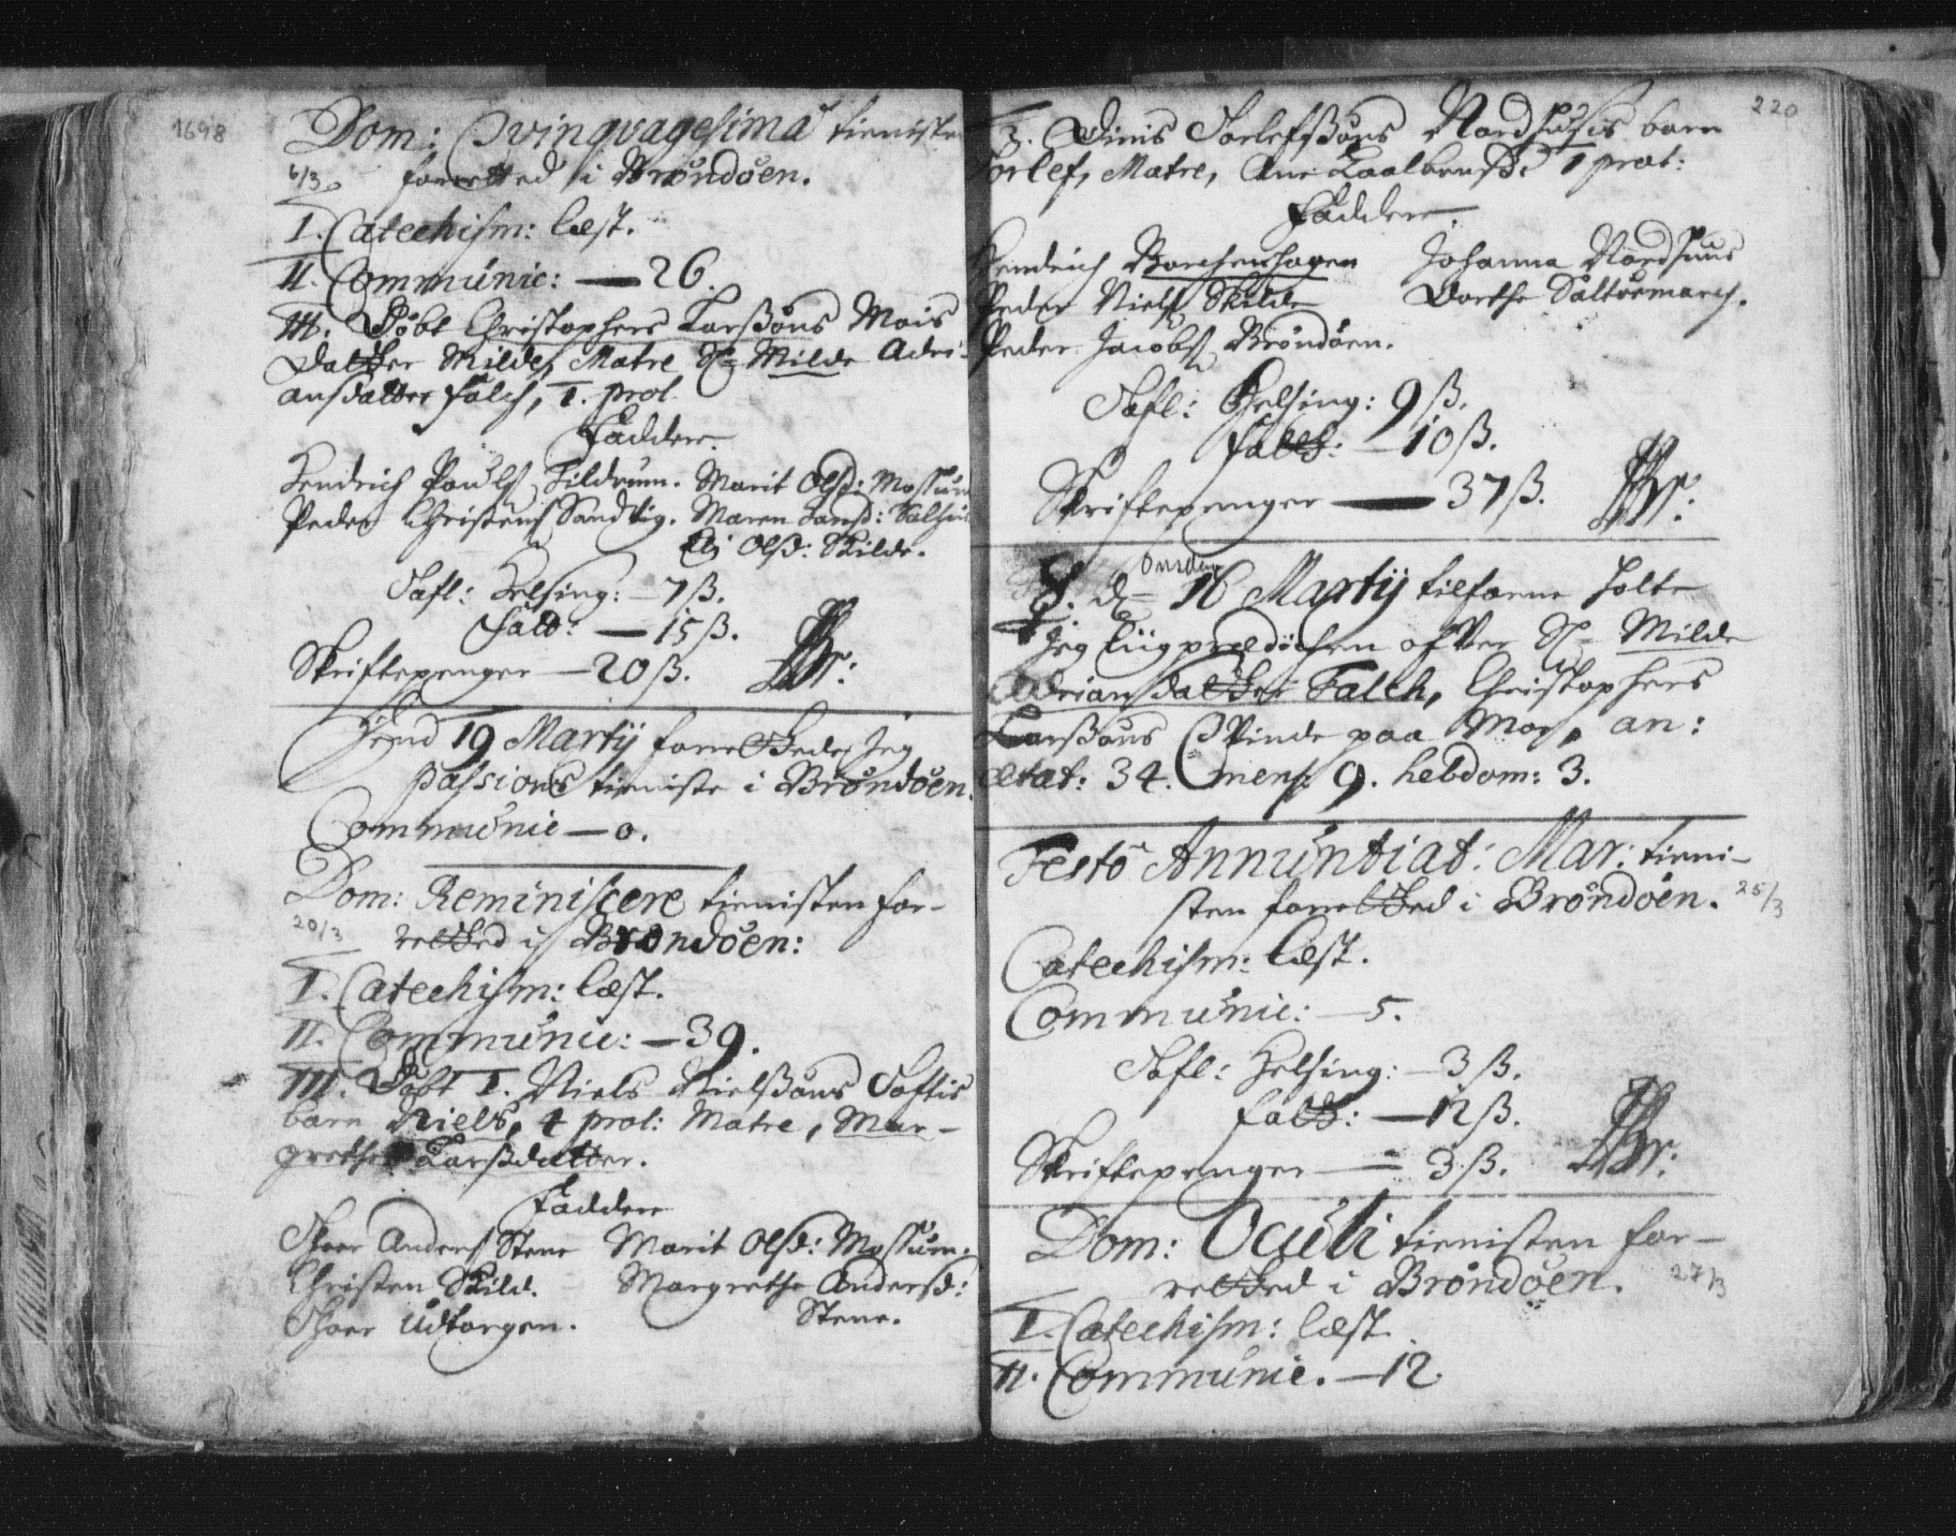 1698
Dom: Qvinqvagesima tieniste
6/3 forretted i Brøndøen.
I. Catechism: læst.
II. Communic: — 26.
III. Døbt Christophers Larssøns Mois
Datter Milde, Matre Sl. Milde Adri-
ansdatter Falch, I. prol.
Faddere.
Hendrich Pouls Tildrum. Marit Olsd: Mossum
Peder Christens Sandvig. Maren Larsd: Salhus
Eli Olsd: Skilde.
Tafl: Helsing: — 7 ß.
Fald: — 15 ß.
Skriftepenger — 20 ß.
19 Martij forrettede Jeg
passions tieniste i Brøndøen.
Communic — 0.
Dom: Reminiscere tienisten for-
20/3 retted i Brøndøen:
I. Catechism: læst.
II. Communic: — 39.
III. Døbt I. Niels Nielssøns Toftis
barn Niels, 4 prol: Matre, Mar-
grethe Larssdatter.
Faddere
Thoer Anders Stene Marit Olsd: Mossum.
Christen Skild. Margrethe Andersd:
Thoer Udtorgen. Stene.
220
3. Torlefssøns Nordhusis barn
Torlef, Matre, Ane 1 prol:
Faddere.
Hendrich Borchenhagen Johanna Nordhuus
Peder Niels Skilde Dorthe Saltøemarch.
Peder Jacobs Brøndøen.
Tafl: Helsing: 9 ß.
Fald: — 10 ß.
Skriftepenger — 37 ß.
Onsdag
d. 16 Martij tilforne holte
Jeg Liigprædichen ofver Sl. Milde
Adriansdatter Falch, Christophers
Larssøns Qvinde paa Moe, an:
ætat: 34. mens: 9. hebdom: 3.
Festo Annuntiat: Mar: tieni-
sten forretted i Brøndøen. 25/3
Catechism: læst.
Communic: — 5.
Tafl: Helsing: — 3 ß.
Fald: — 12 ß.
Skriftepenger — 3 ß.
Dom: Oculi tienisten for-
retted i Brøndøen. 27/3
I. Catechism: læst.
II. Communic. — 12